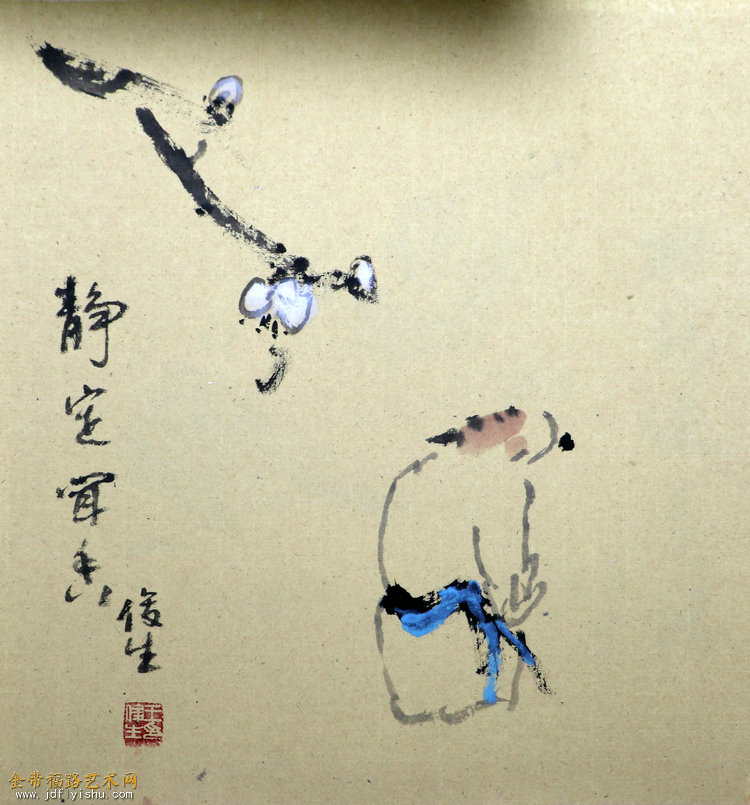 静定闻香
俊生
金带福路艺术网
www.jdflyishu.com